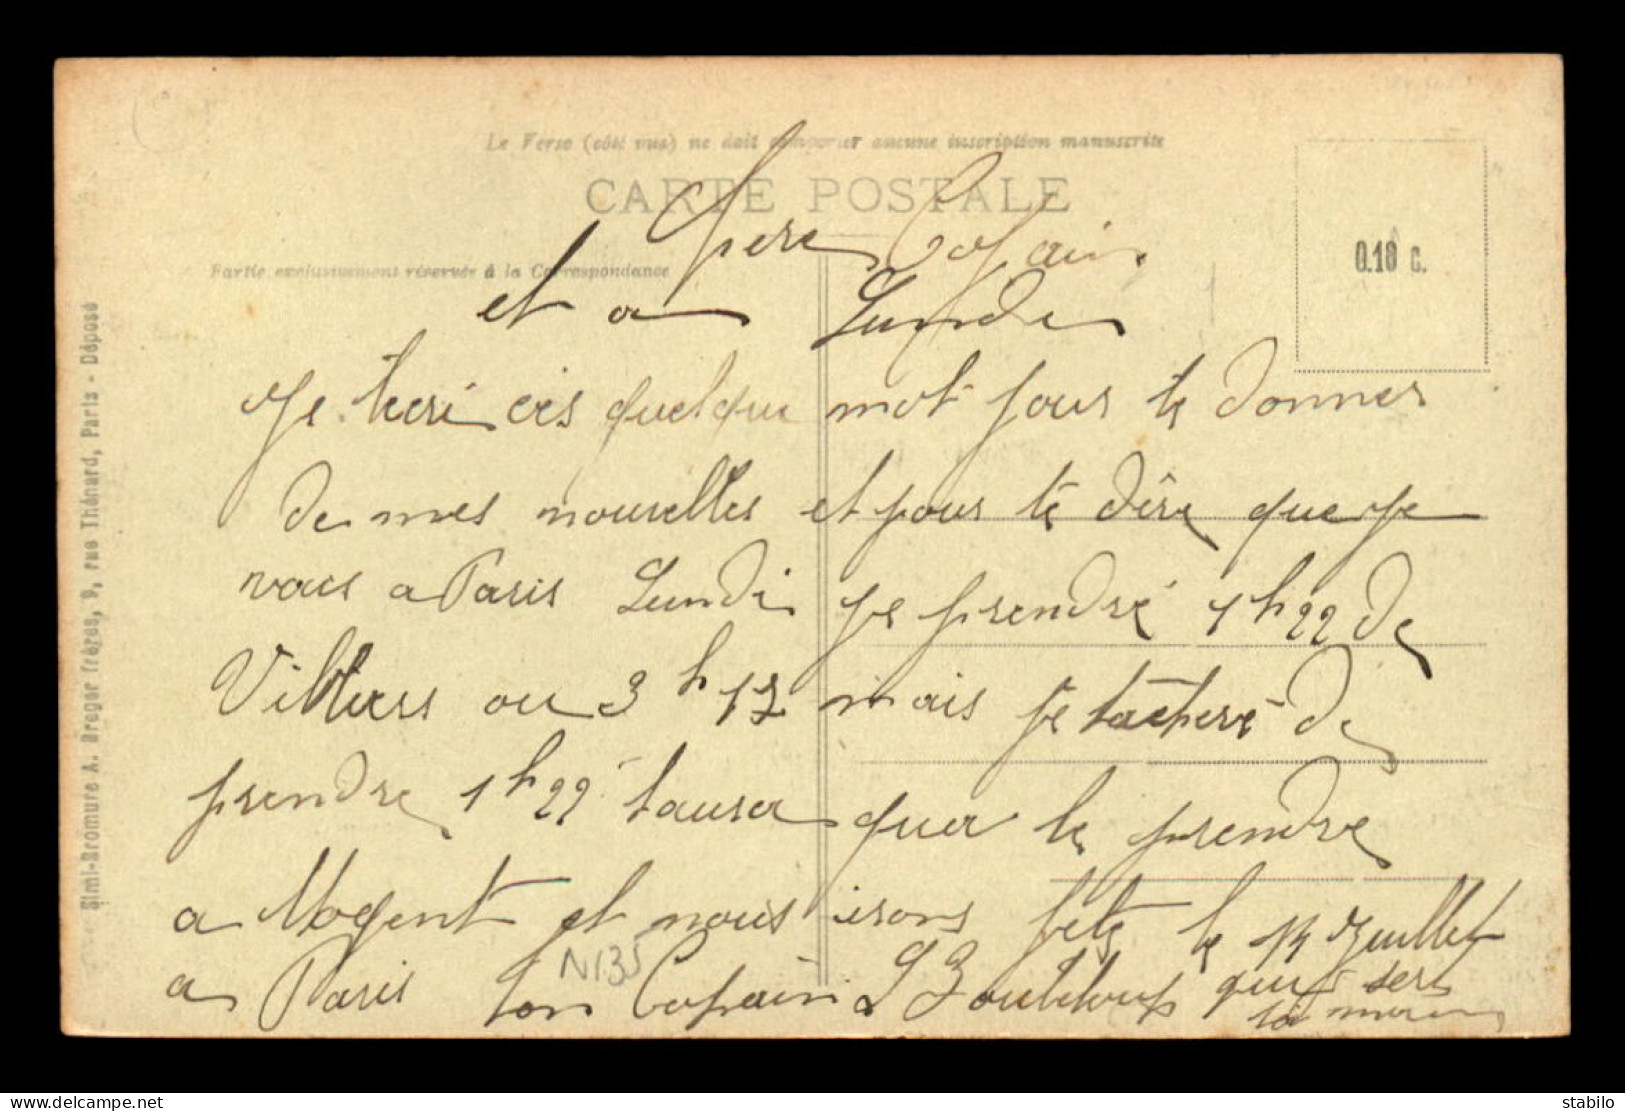 Le Verso (côté vue) ne doit comporter aucune inscription manuscrite
CARTE POSTALE
Partie exclusivement réservée à la Correspondance
0.10 c.
Simi-Bromure A. Breger frères, 9, rue Thénard, Paris - Déposé
Chere Copain
et a Lundi
Je tecri ces quelque mot pour te donner
de mes nouvelles et pour te dire que je
vais a Paris Lundi je prendré 1 h 22 de
Villiers ou 3 h 12 mais je tacheré de
prendre 1 h 22 tausa qua le prendre
a Nogent et nous irons feté le 14 Juillet
a Paris ton Copain L Bouteloup qui sere
ta main
N135
delcampe.net
stabilo